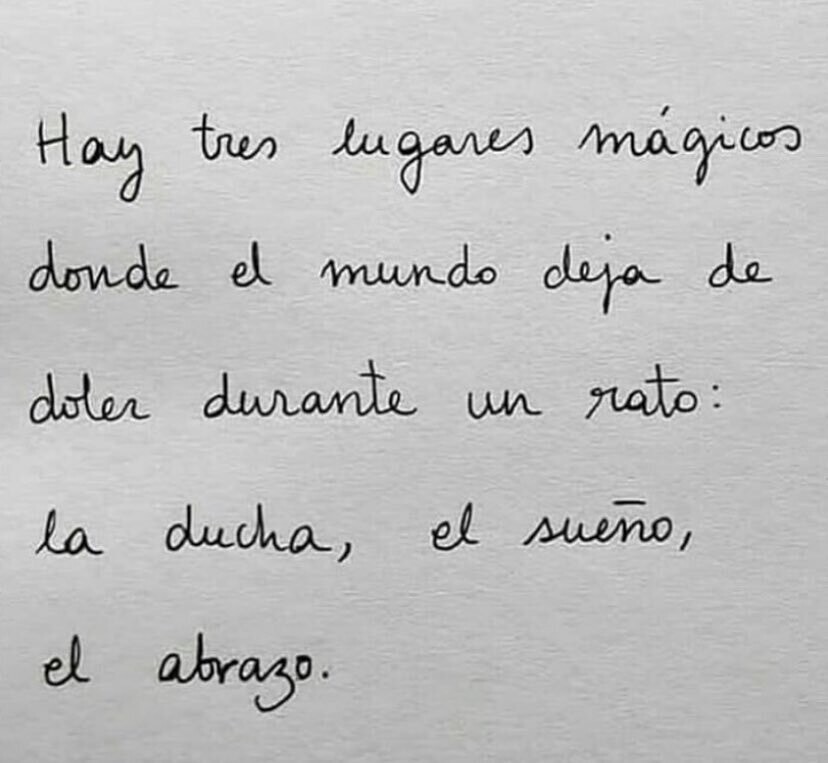 Hay tres lugares mágicos
donde el mundo deja de
doler durante un rato:
la ducha, el sueño,
el abrazo.